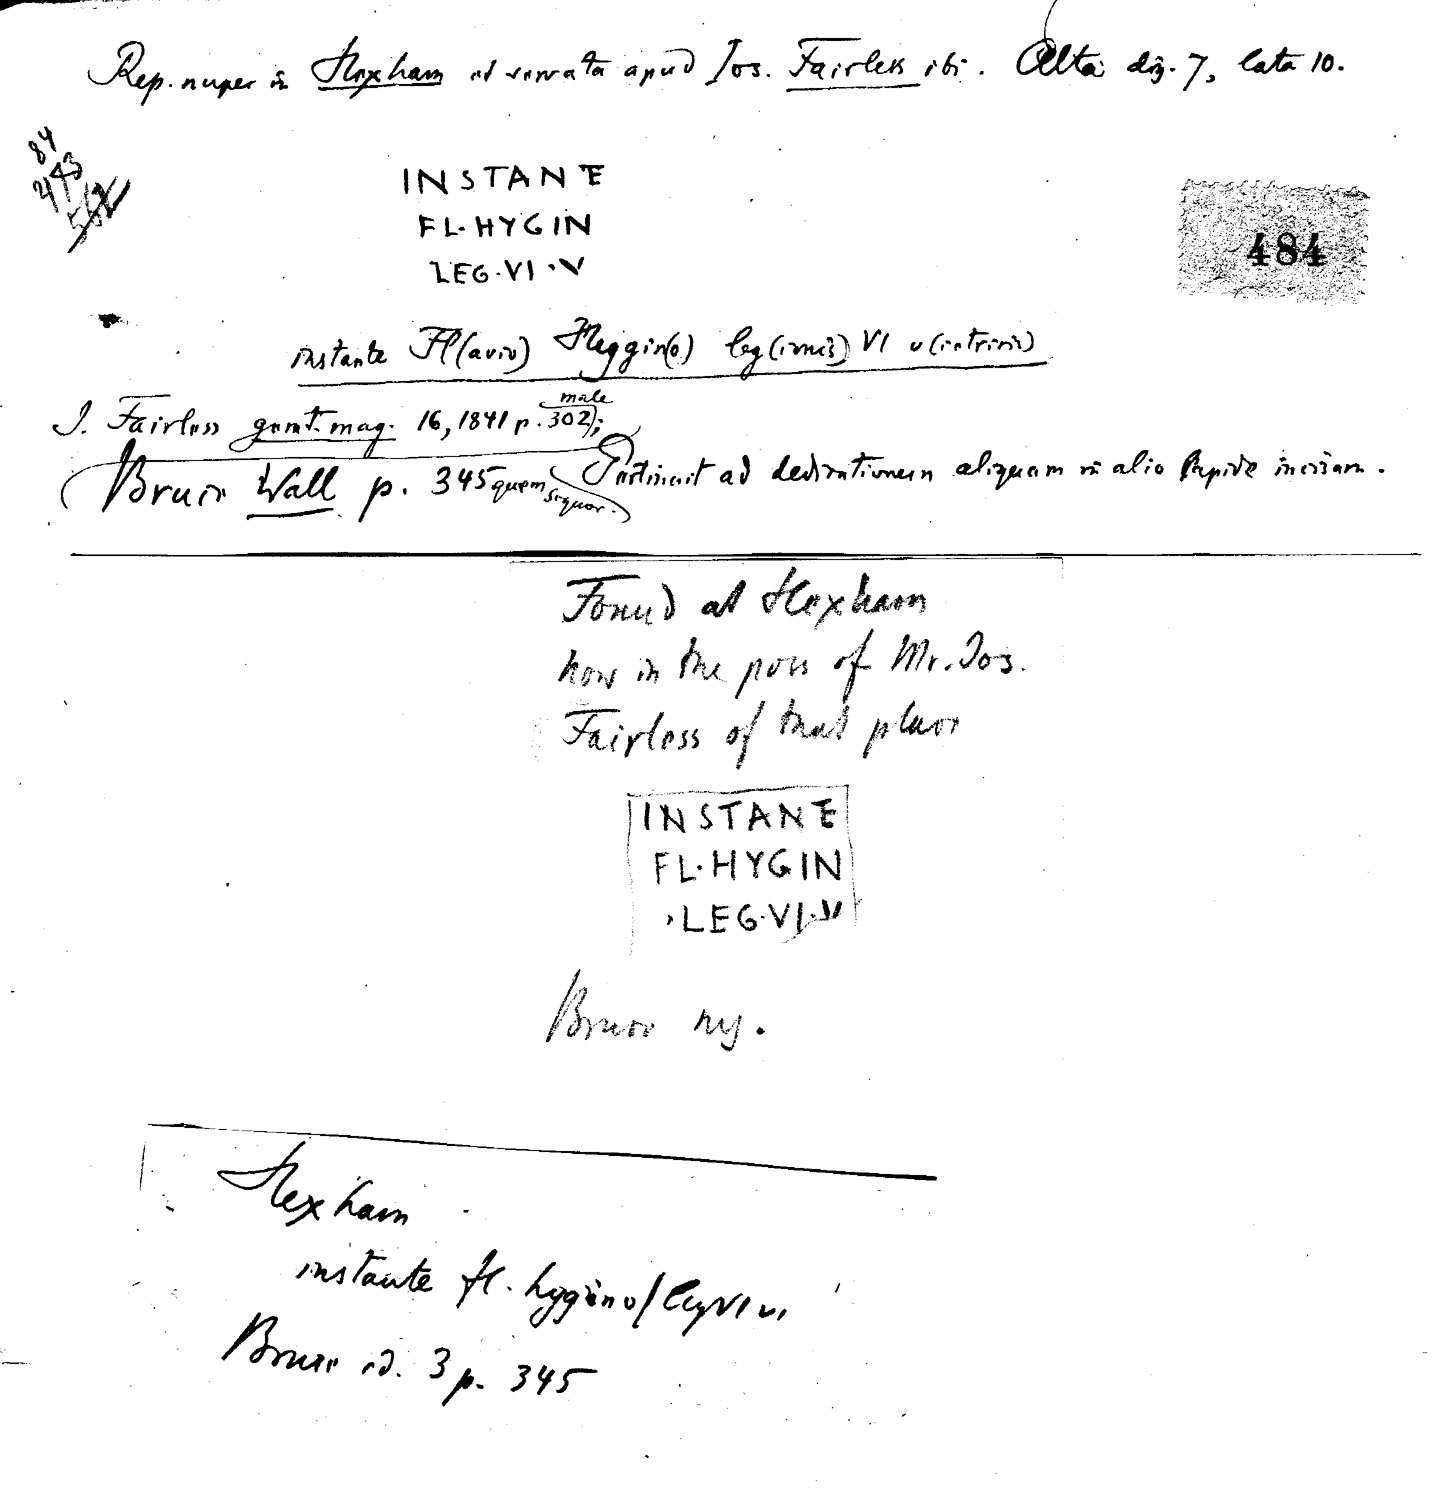 Rep. nuper in Hexham et servata apud Jos. Fairless ibi. Alta dig. 7, lata 10.
84
473
562
INSTANE
FL·HYGIN
LEG·VI·V
484
instante Fl(avio) Hygin(o) leg(ionis) VI v(ictricis)
J. Fairless gent. mag. 16, 1841 p. 302 male;
Bruce Wall p. 345 quem sequor. Pertinuit ad dedicationem aliquam in alio lapide incisam.
Found at Hexham
now in the poss of Mr. Jos.
Fairless of that place
INSTANE
FL·HYGIN
·LEG·VI·V
Bruce
Hexham
instante fl. hygino/leg VI v.
Bruce ed. 3 p. 345